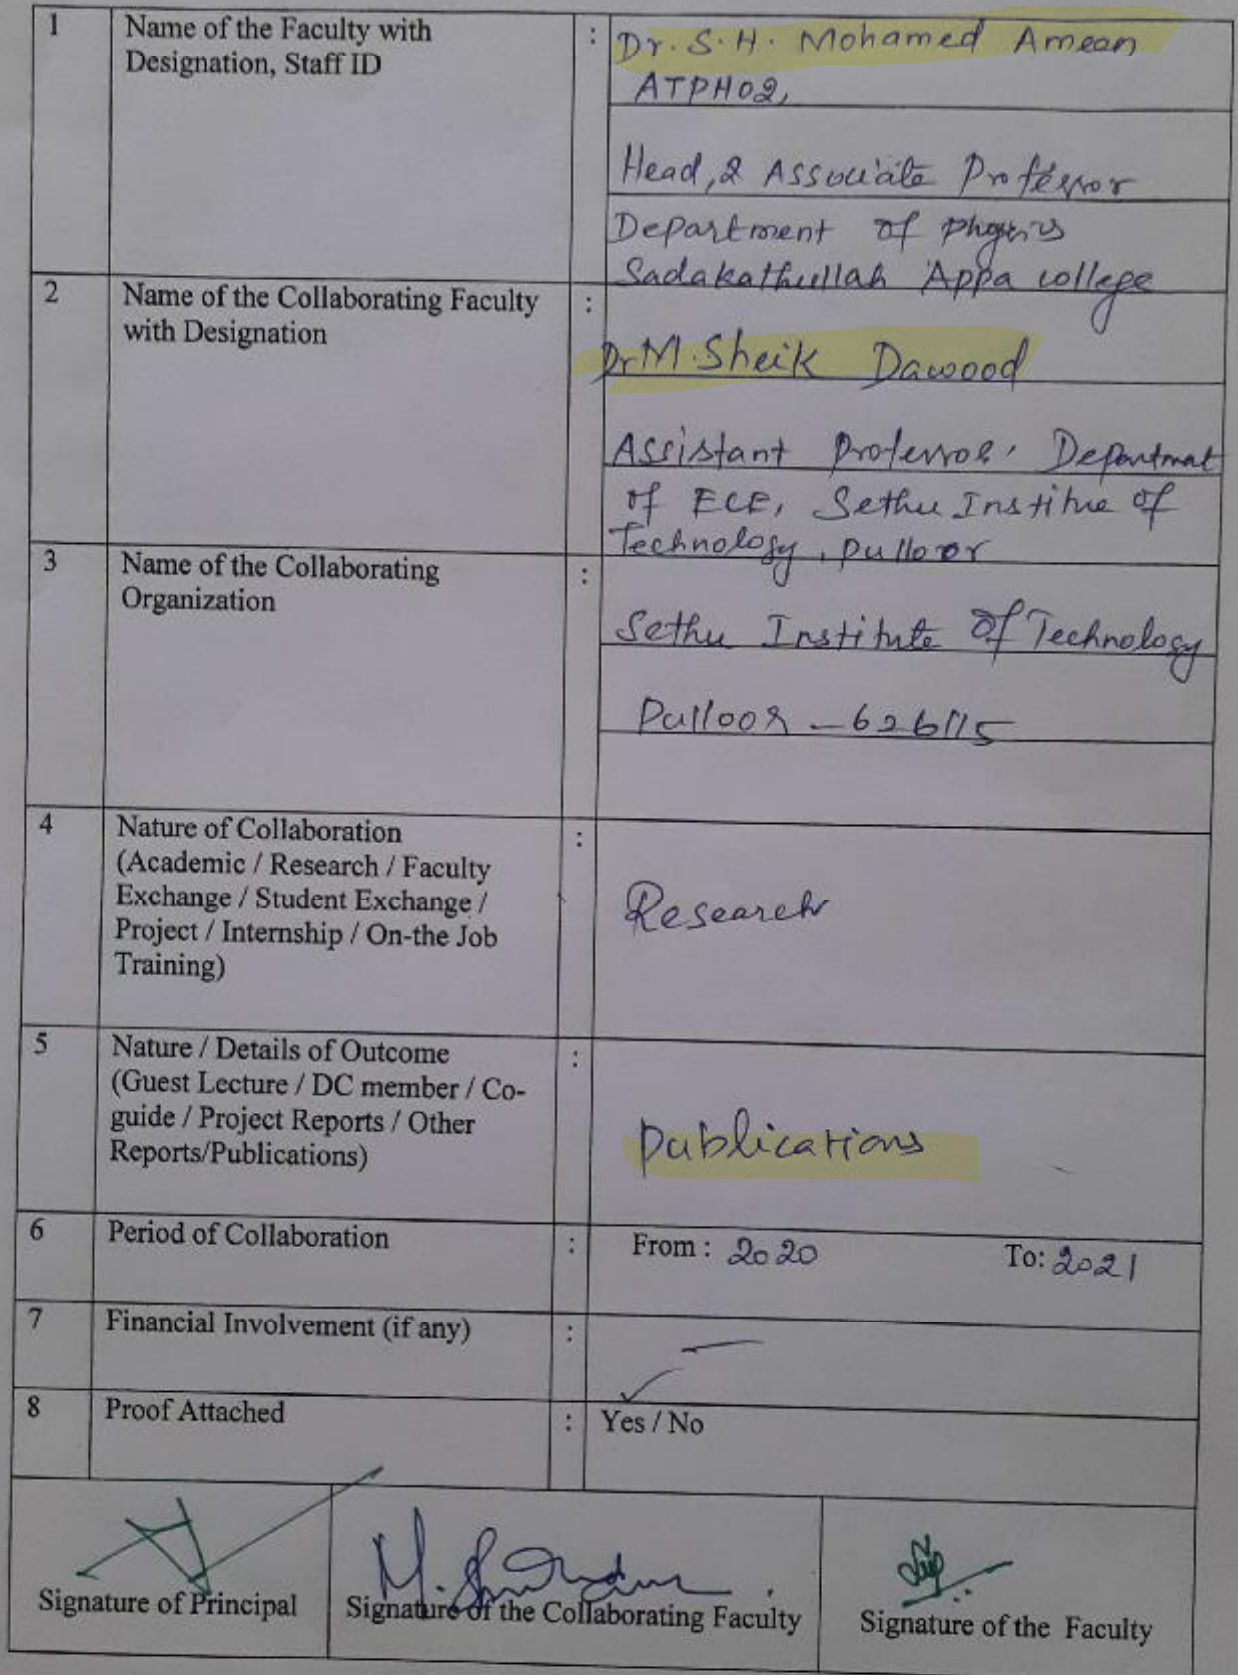 1 Name of the Faculty with : Dr. S. H. Mohamed Amean
Designation, Staff ID ATPH02,
Head, & Associate Professor
Department of physics
Sadakathullah Appa college
2 Name of the Collaborating Faculty :
with Designation Dr M. Sheik Dawood
Assistant Professor, Departmat
of ECE, Sethu Institue of
Technology, pulloor
3 Name of the Collaborating :
Organization Sethu Institute of Technology
Pulloor - 626115
4 Nature of Collaboration :
(Academic / Research / Faculty
Exchange / Student Exchange / Research
Project / Internship / On-the Job
Training)
5 Nature / Details of Outcome :
(Guest Lecture / DC member / Co-
guide / Project Reports / Other Publications
Reports/Publications)
6 Period of Collaboration : From : 2020 To: 2021
7 Financial Involvement (if any) : -
8 Proof Attached : ✓ Yes / No
Signature of Principal Signature of the Collaborating Faculty Signature of the Faculty